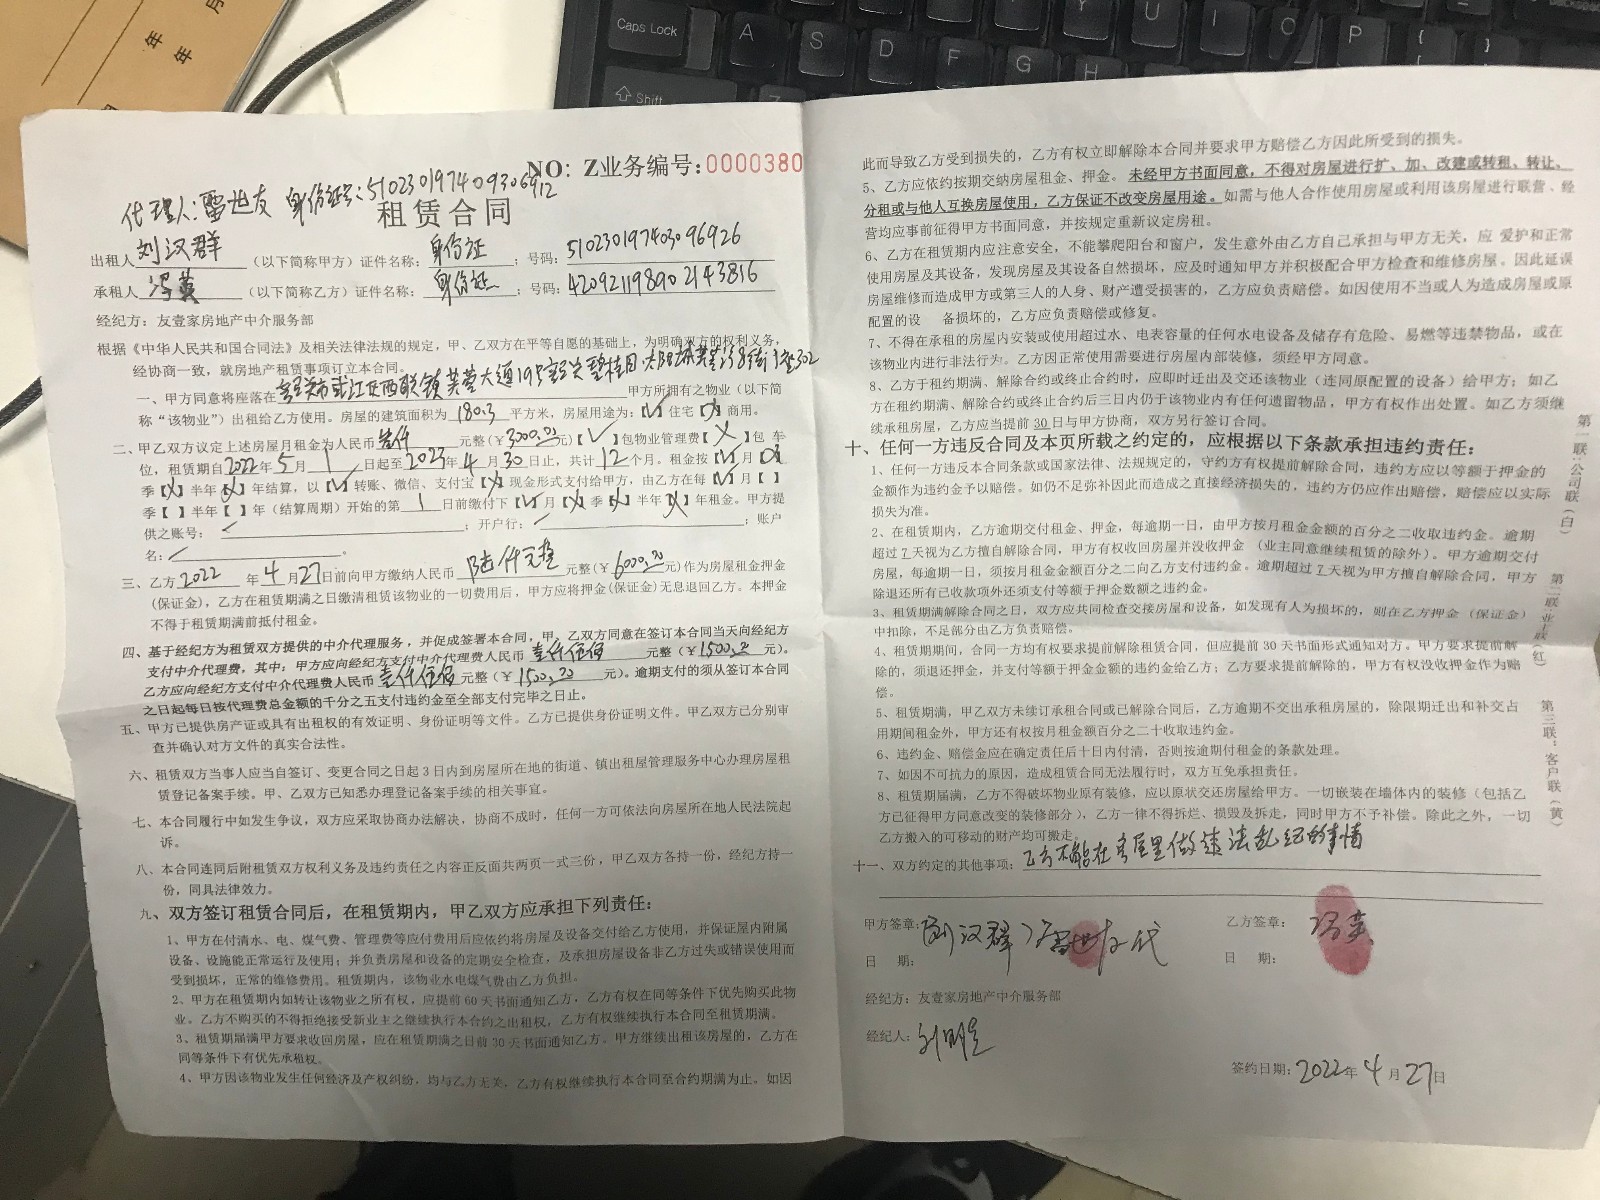 年 月
年
Caps Lock
A S D F G H
Y U I O P
Shift
NO：Z业务编号：0000380
代理人：雷世友 身份证号：510230197409306912
租赁合同
出租人刘汉群（以下简称甲方）证件名称：身份证；号码：510230197403096926
承租人冯英（以下简称乙方）证件名称：身份证；号码：420921198902143816
经纪方：友壹家房地产中介服务部
根据《中华人民共和国合同法》及相关法律法规的规定，甲、乙双方在平等自愿的基础上，为明确双方的权利义务，
经协商一致，就房地产租赁事项订立本合同。
一、甲方同意将座落在 市 江区西联镇芙蓉大道19号 碧桂园 302 甲方所拥有之物业（以下简
称“该物业”）出租给乙方使用。房屋的建筑面积为180.3平方米，房屋用途为：【✓】住宅【X】商用。
二、甲乙双方议定上述房屋月租金为人民币叁仟元整(￥3000.00元)【✓】包物业管理费【X】包 车
位，租赁期自2022年5月1日起至2023年4月30日止，共计12个月。租金按【✓】月【X】
季【X】半年【X】年结算，以【✓】转账、微信、支付宝【X】现金形式支付给甲方，由乙方在每【✓】月【 】
季【 】半年【 】年（结算周期）开始的第1日前缴付下【✓】月【X】季【X】半年【X】年租金。甲方提
供之账号：；开户行：；账户
名：。
三、乙方2022年4月27日前向甲方缴纳人民币陆仟元整元整(￥6000.00元)作为房屋租金押金
(保证金)，乙方在租赁期满之日缴清租赁该物业的一切费用后，甲方应将押金(保证金)无息退回乙方。本押金
不得于租赁期满前抵付租金。
四、基于经纪方为租赁双方提供的中介代理服务，并促成签署本合同，甲、乙双方同意在签订本合同当天向经纪方
支付中介代理费，其中：甲方应向经纪方支付中介代理费人民币壹仟伍佰元整（￥1500.00元）。
乙方应向经纪方支付中介代理费人民币壹仟伍佰元整（￥1500.00元）。逾期支付的须从签订本合同
之日起每日按代理费总金额的千分之五支付违约金至全部支付完毕之日止。
五、甲方已提供房产证或具有出租权的有效证明、身份证明等文件。乙方已提供身份证明文件。甲乙双方已分别审
查并确认对方文件的真实合法性。
六、租赁双方当事人应当自签订、变更合同之日起3日内到房屋所在地的街道、镇出租屋管理服务中心办理房屋租
赁登记备案手续。甲、乙双方已知悉办理登记备案手续的相关事宜。
七、本合同履行中如发生争议，双方应采取协商办法解决，协商不成时，任何一方可依法向房屋所在地人民法院起
诉。
八、本合同连同后附租赁双方权利义务及违约责任之内容正反面共两页一式三份，甲乙双方各持一份，经纪方持一
份，同具法律效力。
九、双方签订租赁合同后，在租赁期内，甲乙双方应承担下列责任：
1、甲方在付清水、电、煤气费、管理费等应付费用后应依约将房屋及设备交付给乙方使用，并保证屋内附属
设备、设施能正常运行及使用；并负责房屋和设备的定期安全检查，及承担房屋设备非乙方过失或错误使用而
受到损坏，正常的维修费用。租赁期内，该物业水电煤气费由乙方负担。
2、甲方在租赁期内如转让该物业之所有权，应提前60天书面通知乙方，乙方有权在同等条件下优先购买此物
业。乙方不购买的不得拒绝接受新业主之继续执行本合约之出租权，乙方有权继续执行本合同至租赁期满。
3、租赁期届满甲方要求收回房屋，应在租赁期满之日前30天书面通知乙方。甲方继续出租该房屋的，乙方在
同等条件下有优先承租权。
4、甲方因该物业发生任何经济及产权纠纷，均与乙方无关，乙方有权继续执行本合同至合约期满为止。如因
此而导致乙方受到损失的，乙方有权立即解除本合同并要求甲方赔偿乙方因此所受到的损失。
5、乙方应依约按期交纳房屋租金、押金。未经甲方书面同意，不得对房屋进行扩、加、改建或转租、转让、
分租或与他人互换房屋使用，乙方保证不改变房屋用途。如需与他人合作使用房屋或利用该房屋进行联营、经
营均应事前征得甲方书面同意，并按规定重新议定房租。
6、乙方在租赁期内应注意安全，不能攀爬阳台和窗户，发生意外由乙方自己承担与甲方无关，应 爱护和正常
使用房屋及其设备，发现房屋及其设备自然损坏，应及时通知甲方并积极配合甲方检查和维修房屋。因此延误
房屋维修而造成甲方或第三人的人身、财产遭受损害的，乙方应负责赔偿。如因使用不当或人为造成房屋或原
配置的设 备损坏的，乙方应负责赔偿或修复。
7、不得在承租的房屋内安装或使用超过水、电表容量的任何水电设备及储存有危险、易燃等违禁物品，或在
该物业内进行非法行为。乙方因正常使用需要进行房屋内部装修，须经甲方同意。
8、乙方于租约期满、解除合约或终止合约时，应即时迁出及交还该物业（连同原配置的设备）给甲方；如乙
方在租约期满、解除合约或终止合约后三日内仍于该物业内有任何遗留物品，甲方有权作出处置。如乙方须继
续承租房屋，乙方应当提前30日与甲方协商，双方另行签订合同。
十、任何一方违反合同及本页所载之约定的，应根据以下条款承担违约责任：
1、任何一方违反本合同条款或国家法律、法规规定的，守约方有权提前解除合同，违约方应以等额于押金的
金额作为违约金予以赔偿。如仍不足弥补因此而造成之直接经济损失的，违约方仍应作出赔偿，赔偿应以实际
损失为准。
2、在租赁期内，乙方逾期交付租金、押金，每逾期一日，由甲方按月租金金额的百分之二收取违约金。逾期
超过7天视为乙方擅自解除合同，甲方有权收回房屋并没收押金（业主同意继续租赁的除外）。甲方逾期交付
房屋，每逾期一日，须按月租金金额百分之二向乙方支付违约金。逾期超过7天视为甲方擅自解除合同，甲方
除退还所有已收款项外还须支付等额于押金数额之违约金。
3、租赁期满解除合同之日，双方应共同检查交接房屋和设备，如发现有人为损坏的，则在乙方押金（保证金）
中扣除，不足部分由乙方负责赔偿。
4、租赁期期间，合同一方均有权要求提前解除租赁合同，但应提前30天书面形式通知对方。甲方要求提前解
除的，须退还押金，并支付等额于押金金额的违约金给乙方；乙方要求提前解除的，甲方有权没收押金作为赔
偿。
5、租赁期满，甲乙双方未续订承租合同或已解除合同后，乙方逾期不交出承租房屋的，除限期迁出和补交占
用期间租金外，甲方还有权按月租金额百分之二十收取违约金。
6、违约金、赔偿金应在确定责任后十日内付清，否则按逾期付租金的条款处理。
7、如因不可抗力的原因，造成租赁合同无法履行时，双方互免承担责任。
8、租赁期届满，乙方不得破坏物业原有装修，应以原状交还房屋给甲方。一切嵌装在墙体内的装修（包括乙
方已征得甲方同意改变的装修部分），乙方一律不得拆烂、损毁及拆走，同时甲方不予补偿。除此之外，一切
乙方搬入的可移动的财产均可搬走。
十一、双方约定的其他事项：乙方不能在房屋里做违法乱纪的事情
甲方签章：刘汉群 雷世友代 乙方签章：冯英
日 期： 日 期：
经纪方：友壹家房地产中介服务部
经纪人：刘明
签约日期：2022年4月27日
第一联：公司联（白）
第二联：业主联（红）
第三联：客户联（黄）